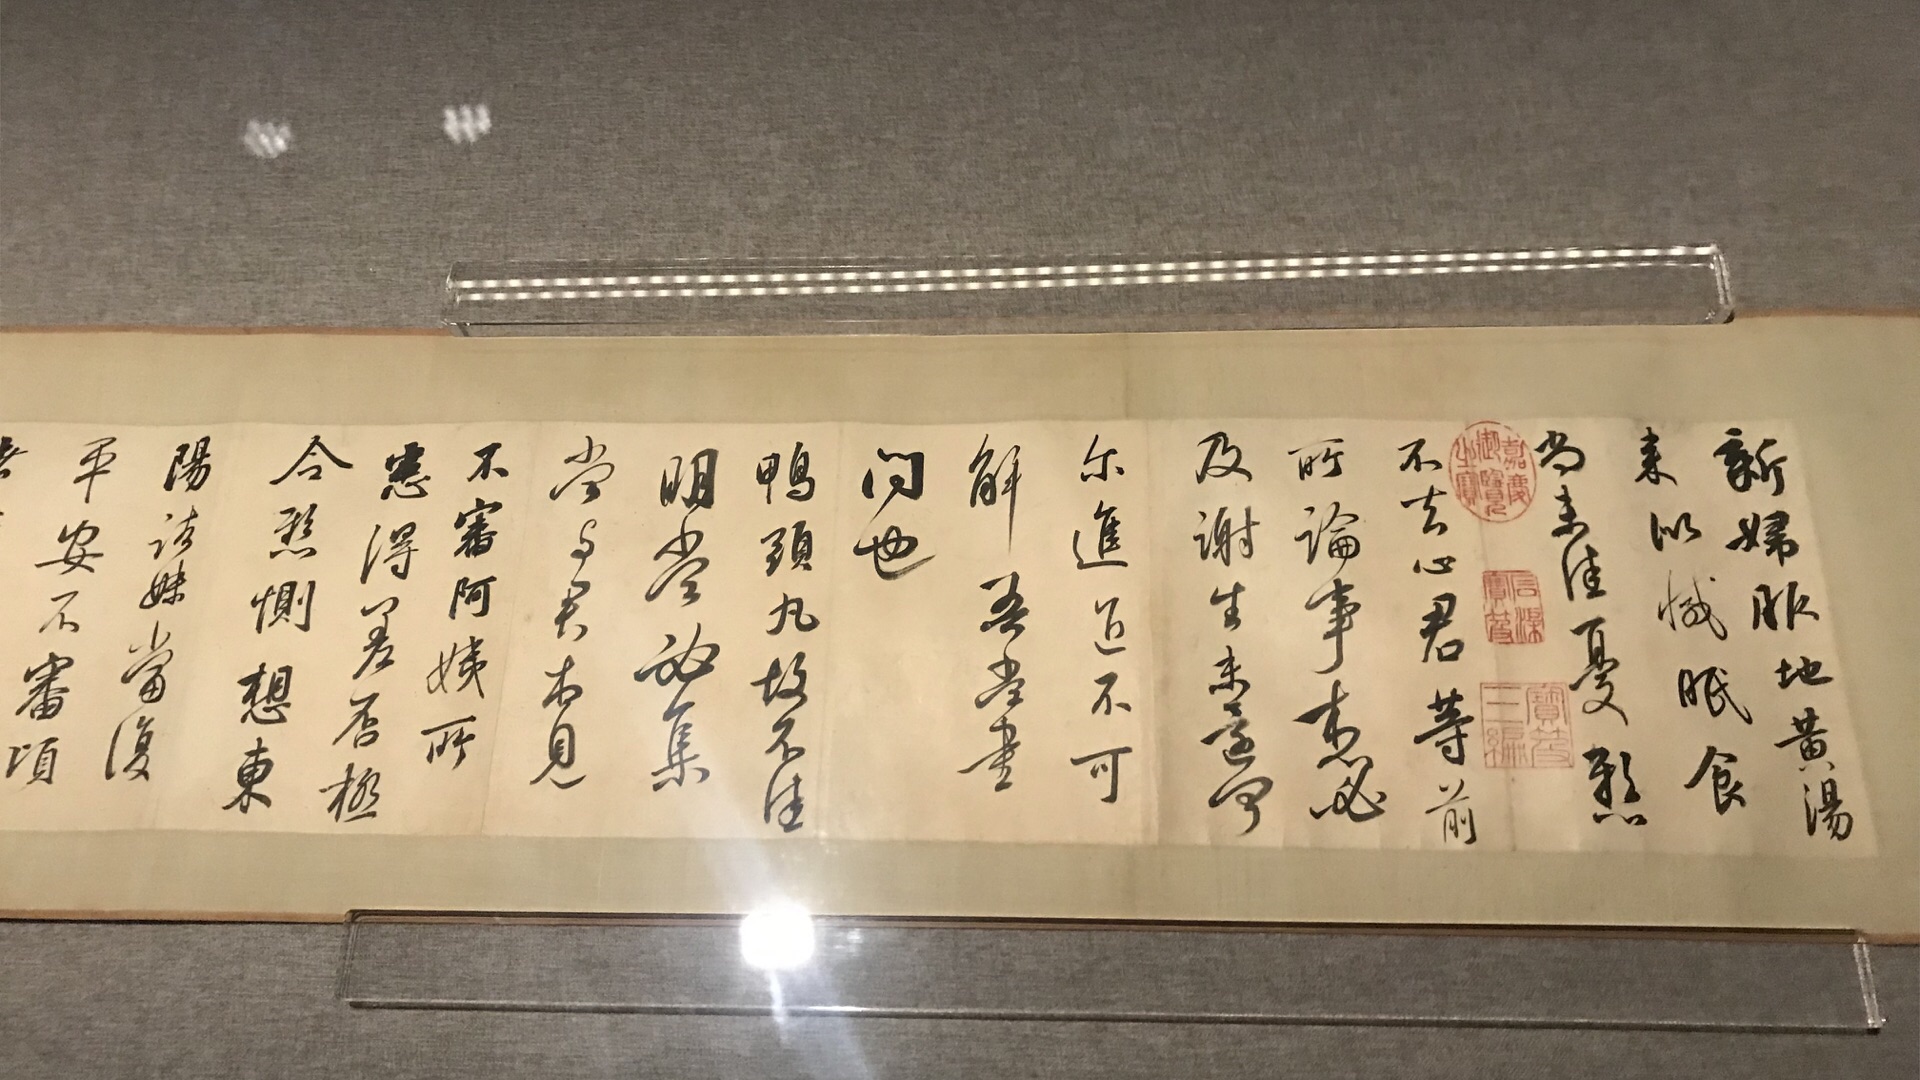 新婦服地黃湯
来似減眠食
尚未佳憂懸
不去心君等前
所論事想必
及謝生未還何
尔進退不可
解吾當書
問也
鴨頭丸故不佳
明當必集
當与君相見
不審阿姨所
患得差否極
令懸惻想東
陽諸妹當復
平安不審頃
嘉慶御覽之寶
石渠寶笈
寶笈三編